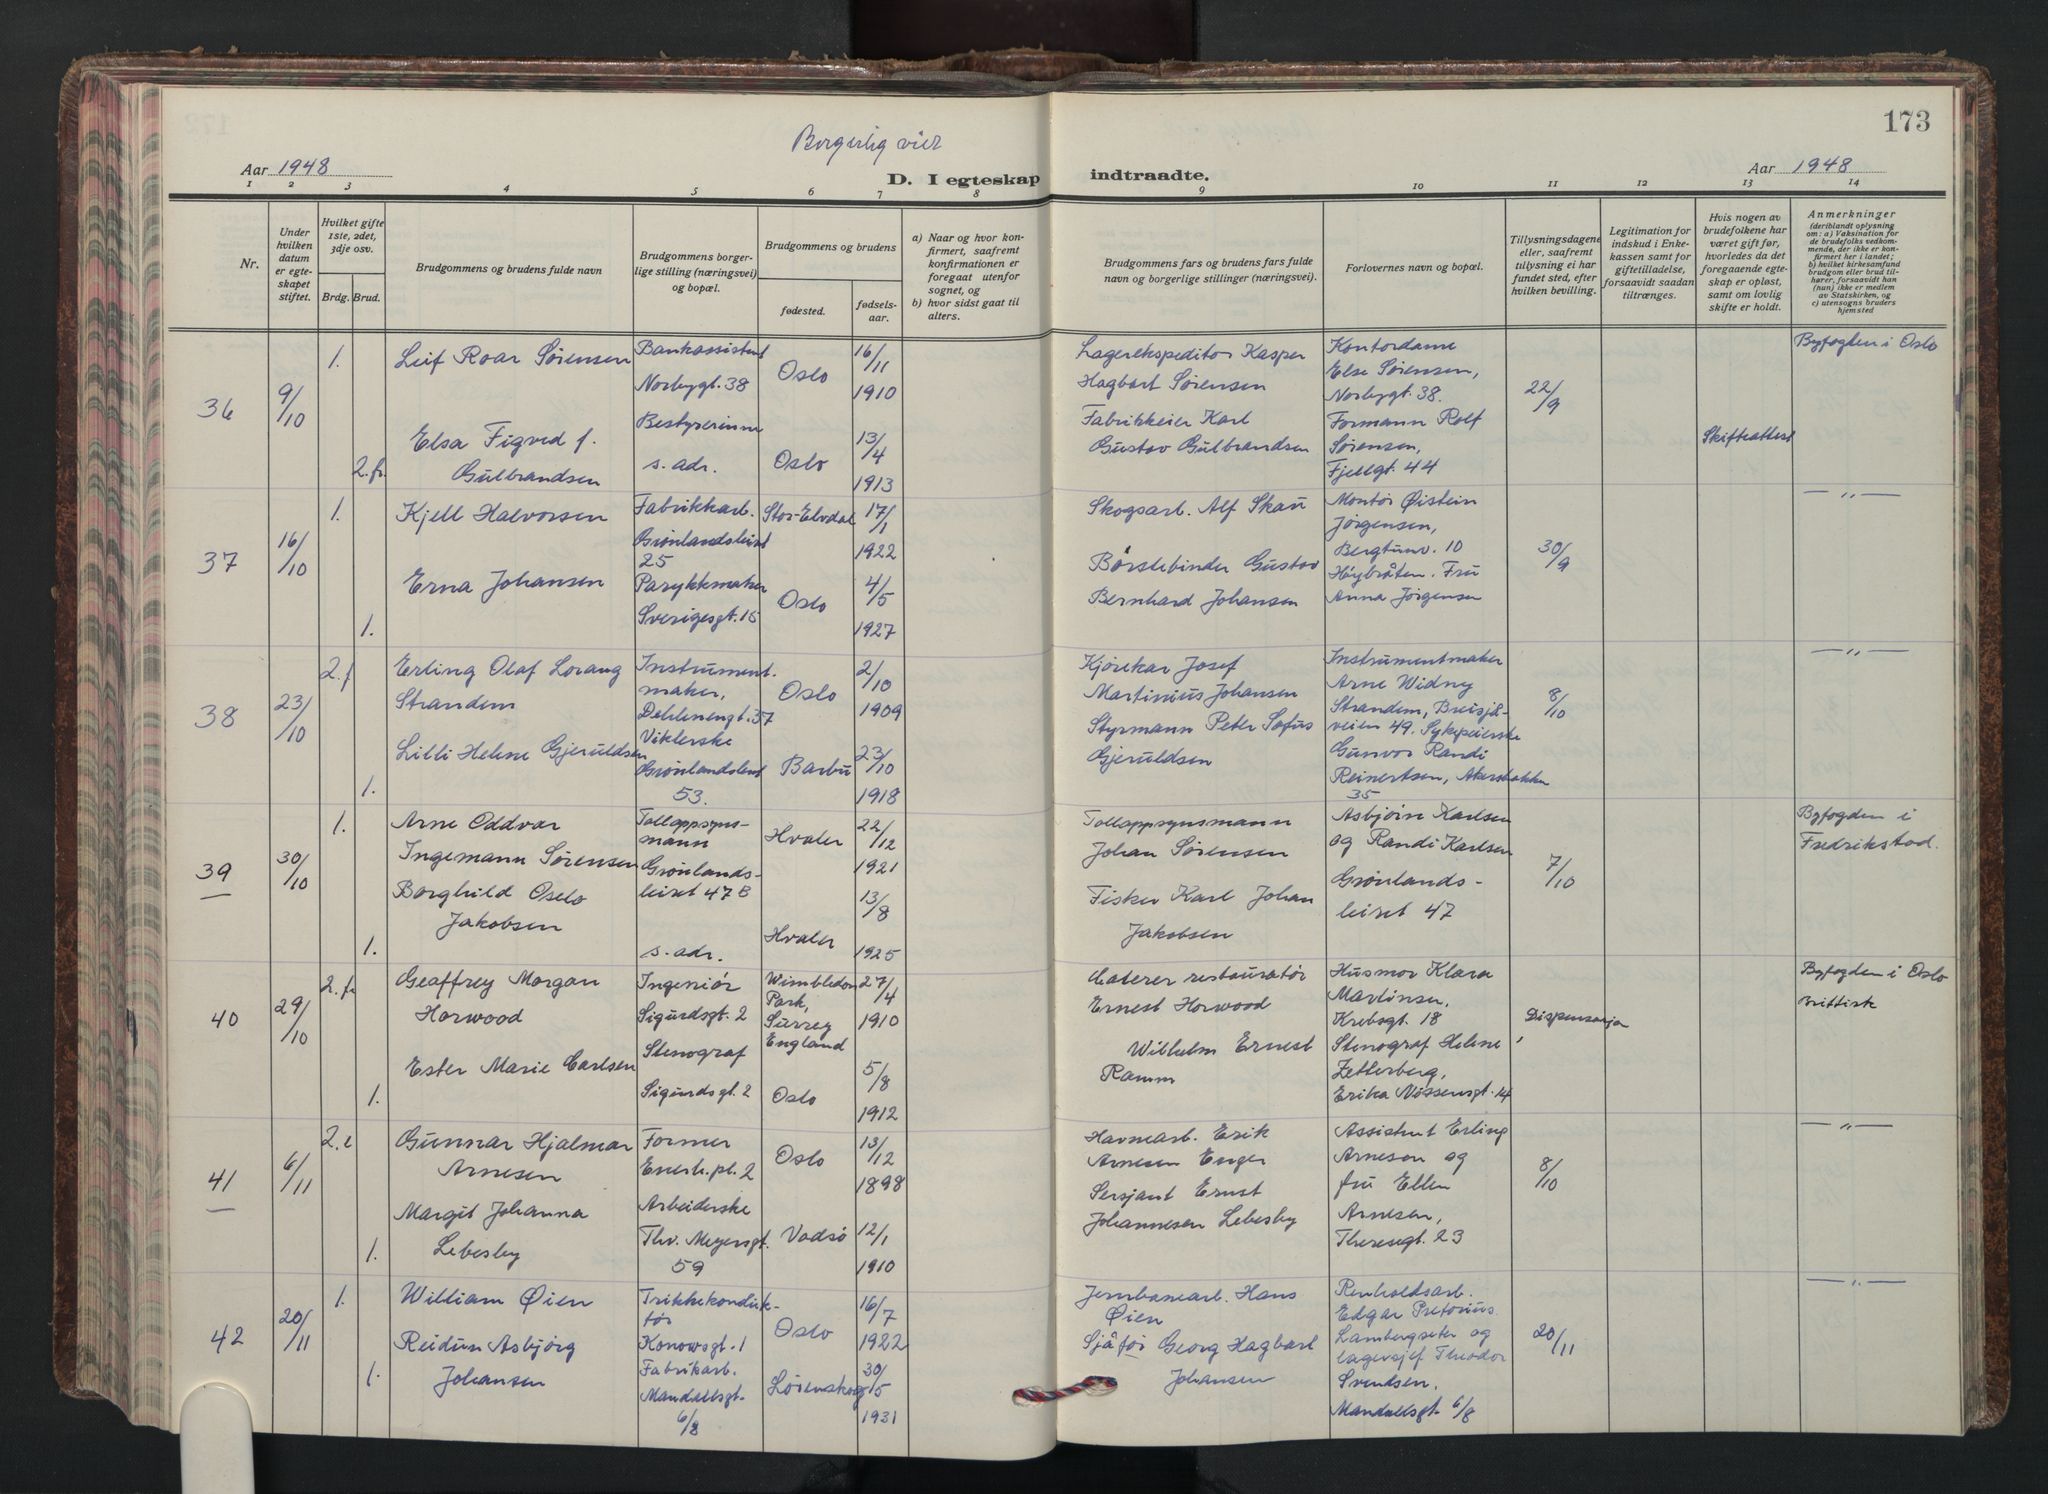 173
Borgerlig viet
Aar 1948
D. I egteskap indtraadte.
Aar 1948
1 2 3 4 5 6 7 8 9 10 11 12 13 14
Nr.
Under hvilken datum er egteskapet stiftet.
Hvilket gifte 1ste, 2det, 3dje osv.
Brdg. Brud.
Brudgommens og brudens fulde navn
Brudgommens borgerlige stilling (næringsvei) og bopæl.
Brudgommens og brudens
fødested.
fødselsaar.
a) Naar og hvor konfirmert, saafremt konfirmationen er foregaat utenfor sognet, og
b) hvor sidst gaat til alters.
Brudgommens fars og brudens fars fulde navn og borgerlige stillinger (næringsvei).
Forlovernes navn og bopæl.
Tillysningsdagene eller, saafremt tillysning ei har fundet sted, efter hvilken bevilling.
Legitimation for indskud i Enkekassen samt for giftetilladelse, forsaavidt saadan tiltrænges.
Hvis nogen av brudefolkene har været gift før, hvorledes da det foregaaende egteskap er opløst, samt om lovlig skifte er holdt.
Anmerkninger
(deriblandt oplysning om: a) Vaksination for de brudefolks vedkommende, der ikke er konfirmert her i landet;
b) hvilket kirkesamfund brudgom eller brud tilhører, forsaavidt han (hun) ikke er medlem av Statskirken, og
c) utensogns bruders hjemsted
36
9/10
1.
Leif Roar Sørensen
Bankassistent
Norbygt. 38
Oslo
16/11
1910
2. fr.
Elsa Figved f.
Gulbrandsen
Bestyrerinne
s. adr.
Oslo
13/4
1913
Lagerekspeditør Kasper
Hagbart Sørensen
Fabrikkeier Karl
Gustav Gulbrandsen
Kontordame
Else Sørensen,
Norbygt. 38.
Formann Rolf
Sørensen,
Fjellgt. 44
22/9
Skifteattest
Byfogden i Oslo
37
16/10
1.
Kjell Halvorsen
Fabrikkarb.
Grønlandsleiret
25
Stor-Elvdal
17/1
1922
Erna Johansen
1.
Parykkmaker
Sverigesgt. 15
Oslo
4/5
1927
Skogsarb. Alf Skau
Børstebinder Gustav
Bernhard Johansen
Montør Øistein
Jørgensen,
Bergtunv. 10
Høybråten. Fru
Anna Jørgensen
30/9
— „ —
38
23/10
2. f
Erling Olaf Lorang
Strandem
Instrument-
maker,
Dehlenengt. 37
Oslo
2/10
1909
Lilli Helene Gjeruldsen
1.
Viklerske
Grønlandsleiret
53.
Barbu
23/10
1918
Kjørekar Josef
Martinius Johansen
Styrmann Peter Sofus
Gjeruldsen
Instrumentmaker
Arne Widny
Strandem, Breisjå-
veien 49. Sykepleierske
Gunvor Randi
Reinertsen, Akersbakken
35
8/10
— „ —
39
30/10
1.
Arne Oddvar
Ingemann Sørensen
Tolloppsyns-
mann
Grønlands-
leiret 47 B
Hvaler
22/12
1921
Borghild Oselo
Jakobsen
1.
s. adr.
Hvaler
13/8
1925
Tolloppsynsmann
Johan Sørensen
Fisker Karl Johan
Jakobsen
Asbjørn Karlsen
og Randi Karlsen
Grønlands-
leiret 47
7/10
Byfogden i
Fredrikstad.
40
29/10
2. fr
Geaffrey Morgan
Horwood
Ingeniør
Sigurdsgt. 2
Wimbledon
Park,
Surrey
England
27/4
1910
Ester Marie Carlsen
1.
Stenograf
Sigurdsgt. 2
Oslo
5/8
1912
Caterer restauratør
Ernest Horwood
Wilhelm Ernest
Ramm
Husmor Klara
Martinsen,
Krebsgt. 18
Stenograf Helene
Zetterberg,
Erika Nissensgt. 14
Dispensasjon
Byfogden i Oslo
Brittisk
41
6/11
2. e
Gunnar Hjalmar
Arnesen
Former
Enerh. pl. 2
Oslo
13/12
1898
Margit Johanna
Lebesby
1.
Arbeiderske
Thv. Meyersgt.
59
Vadsø
12/1
1910
Havnearb. Erik
Arnesen Enger
Sersjant Ernst
Johannesen Lebesby
Assistent Erling
Arneson og
fru Ellen
Arnesen,
Theresegt. 23
8/10
— „ —
42
20/11
1.
William Øien
Trikkekonduk-
tør
Konowsgt. 1
Oslo
16/7
1922
Reidun Asbjørg
Johansen
1.
Fabrikarb.
Mandallsgt.
6/8
Lørenskog
30/5
1931
Jernbanearb. Hans
Øien
Sjåfør Georg Hagbart
Johansen
Renholdsarb.
Edgar Pretorius
Lambergseter og
lagersjef Theodor
Svendsen,
Mandallsgt. 6/8
20/11
— „ —